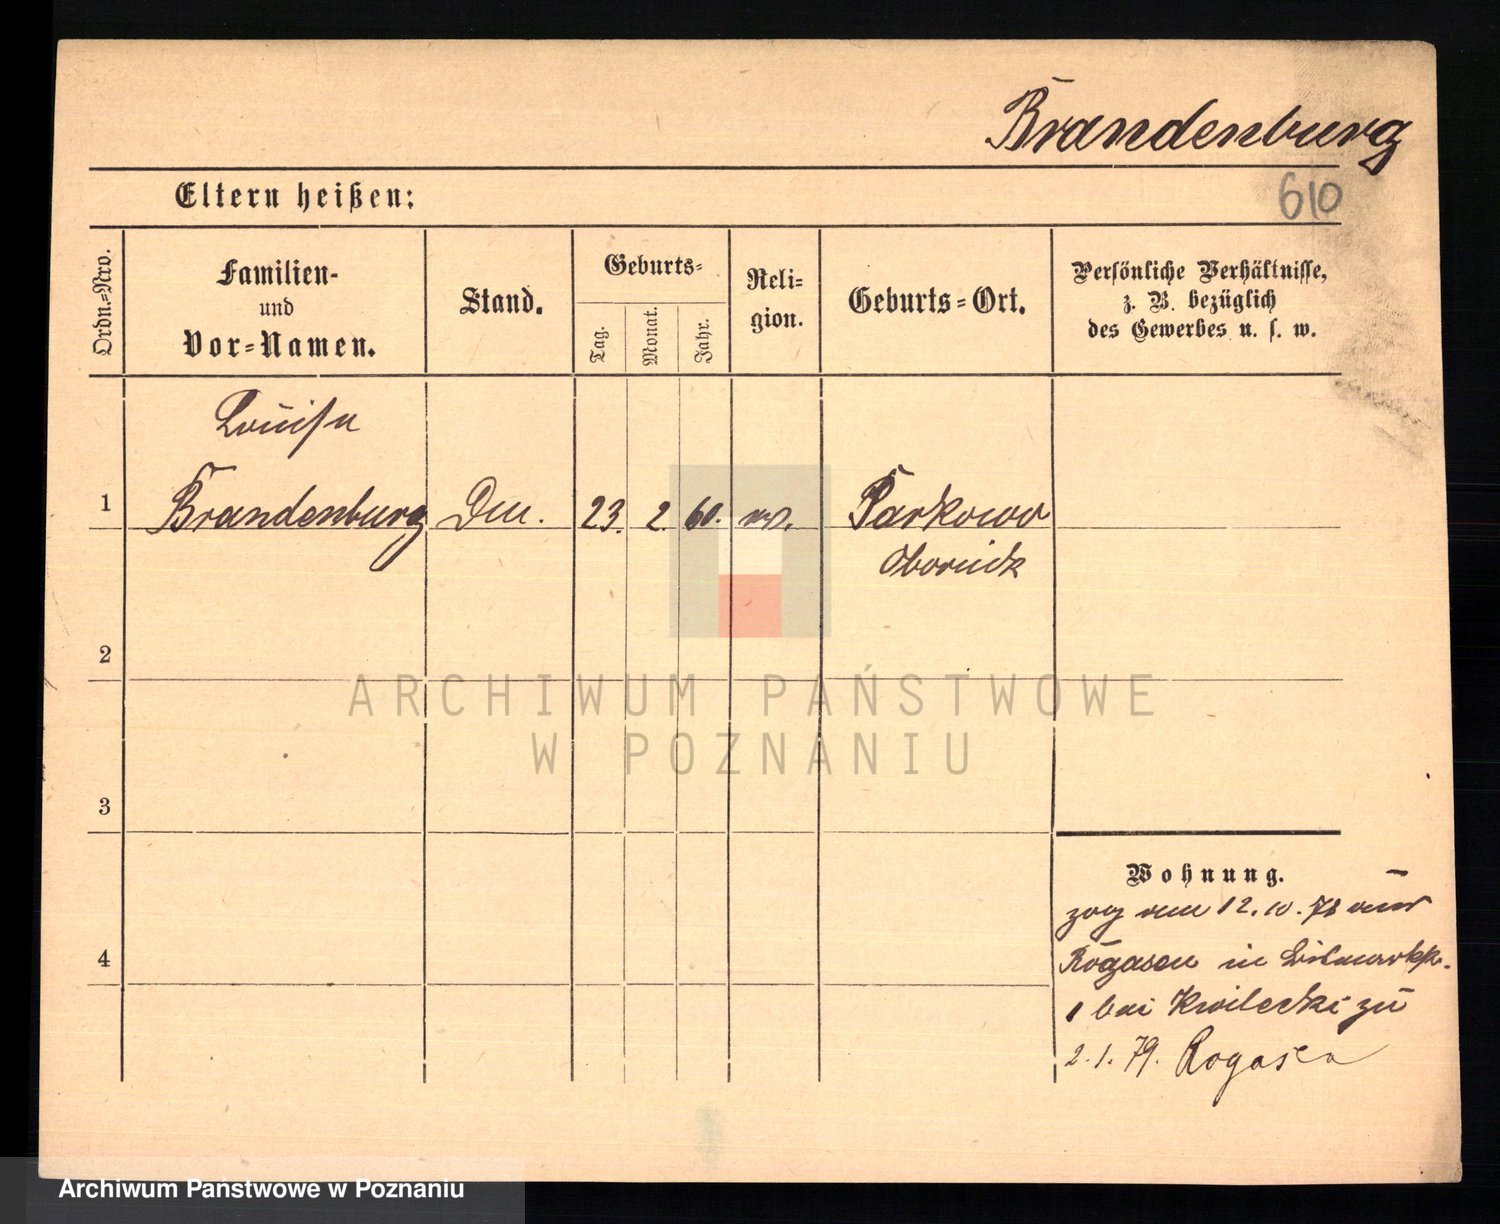 Brandenburg
610
Eltern heißen:
Ordn.=Nro.
Familien-
und
Vor=Namen.
Stand.
Geburts=
Tag.
Monat.
Jahr.
Reli=
gion.
Geburts=Ort.
Persönliche Verhältnisse,
z. B. bezüglich
des Gewerbes u. s. w.
Louise
1 Brandenburg 23. 2. 60. Parkowo
Obornick
2
ARCHIWUM PAŃSTWOWE
W POZNANIU
3
Wohnung.
zog am 12.10.78 aus
4
Rogasen in
1 bei Kwilecki zu
2.1.79. Rogasen
Archiwum Państwowe w Poznaniu